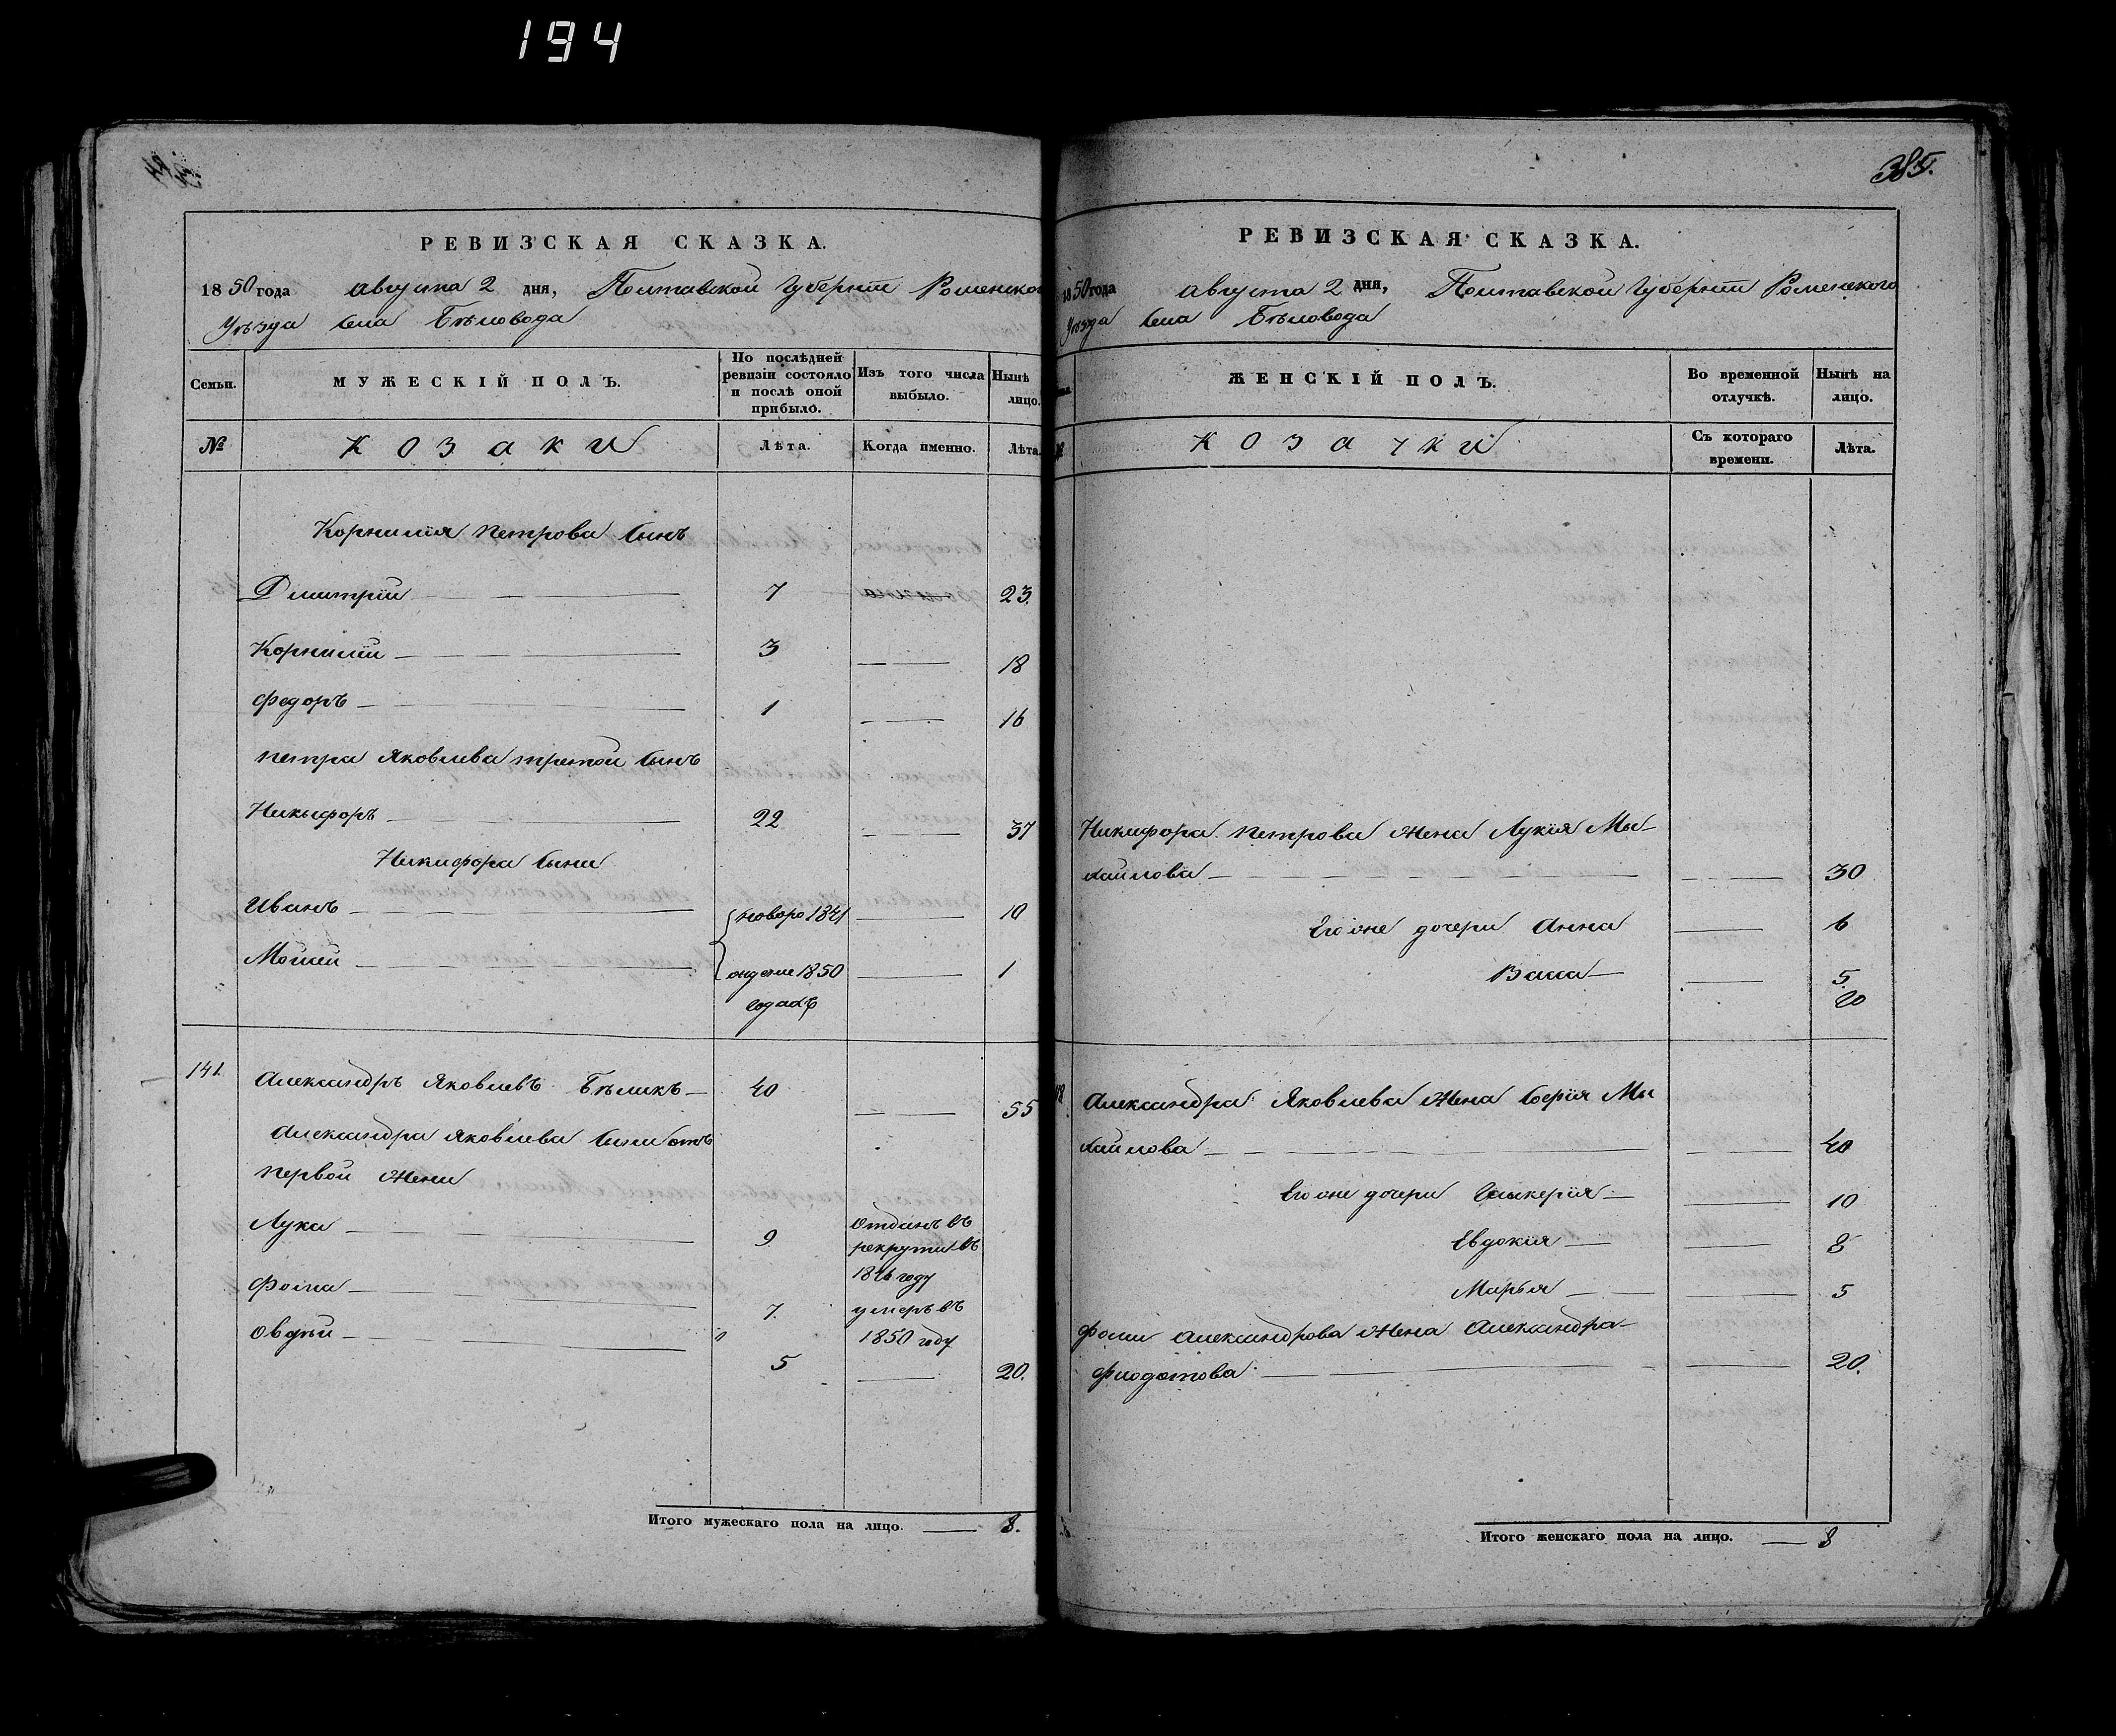 194
РЕВИЗСКАЯ СКАЗКА.
1850 года августа 2 дня, Полтавской Губерніи Роменског
Уѣзда Села Бѣловода
Семьи.
МУЖЕСКІЙ ПОЛЪ.
По послѣдней ревизіи состояло и послѣ оной прибыло.
Изъ того числа выбыло.
Нынѣ лицо.
№
козаки
Лѣта.
Когда именно.
Лѣта.
Корнилія Петрова сынъ
Дмитрій 7 23.
Корнилій 3 18
Федоръ 1 16
Петра Яковлева третой сынъ
Никыфоръ 22 37
Никифора сыны
Иванъ новоро 1841 10
Мойсей жденые 1850 1
годахъ
141 Александръ Яковлевъ Бѣликъ 40 55
Александра Яковлева сыны отъ
первой жены
Лука 9 отданъ въ
рекруты въ
году
Фома 7. умеръ въ
1850 году
Овдѣй 5 20.
Итого мужескаго пола на лицо. 8.
385.
РЕВИЗСКАЯ СКАЗКА.
1850 года августа 2 дня, Полтавской Губерніи Роменского
Уѣзда Села Бѣловода
ЖЕНСКІЙ ПОЛЪ.
Во временной отлучкѣ.
Нынѣ на лицо.
козачки
Съ котораго времени.
Лѣта.
Никифора Петрова жена Лукія Мы-
хайлова 30
Его оне дочери Анна 6
Васса 5.
Александра Яковлева жена Софія Мы
хайлова 40
Его оне дочери Гликерія 10
Евдокія 8
Марья 5
Фомы Александрова жена Александра
Фиодотова 20.
Итого женскаго пола на лицо. 8